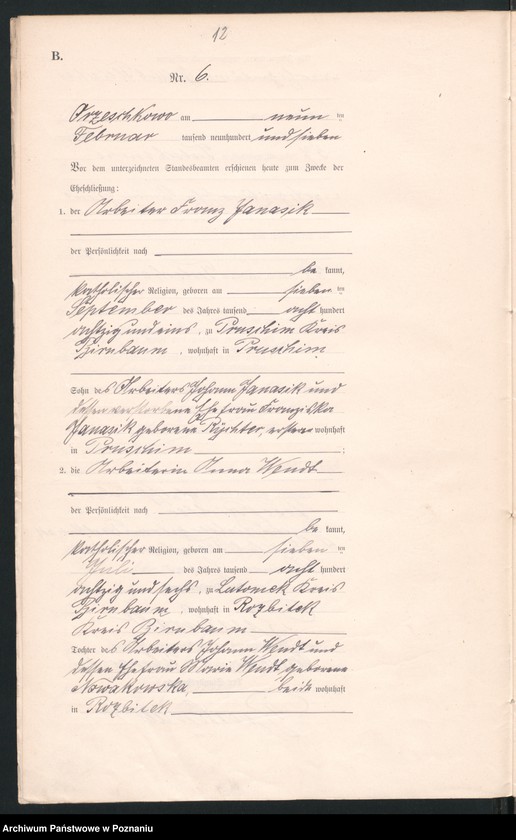 12
B.
Nr. 6.
Orzeschkowo am neun ten
Februar tausend neunhundert und sieben
Vor dem unterzeichneten Standesbeamten erschienen heute zum Zwecke der
Eheschließung:
1. der Arbeiter Franz Janasik
der Persönlichkeit nach
be kannt,
katholischer Religion, geboren am sieben ten
September des Jahres tausend acht hundert
achtzig und eins, zu Pruschim Kreis
Birnbaum, wohnhaft in Pruschim
Sohn des Arbeiters Johann Janasik und
dessen verstorbene Ehefrau Franziska
Janasik geborene erster wohnhaft
in Pruschim ;
2. die Arbeiterin Anna Wendt
der Persönlichkeit nach
be kannt,
katholischer Religion, geboren am sieben ten
Juli des Jahres tausend acht hundert
achtzig und sechs, zu Lutomek Kreis
Birnbaum, wohnhaft in Rozbitek
Kreis Birnbaum
Tochter des Arbeiters Johann Wendt und
dessen Ehefrau Marie Wendt geborene
Nowakowska, beide wohnhaft
in Rozbitek
Archiwum Państwowe w Poznaniu